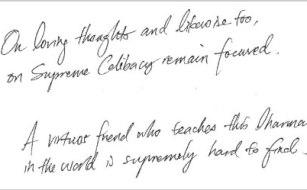 On loving thoughts and likewise too,
on Supreme Celibacy remain focused.
A virtuos friend who teaches this Dharma
in the world is supremely hard to find.